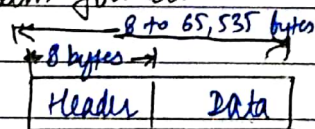 8 to 65,535 bytes
8 bytes
Header Data